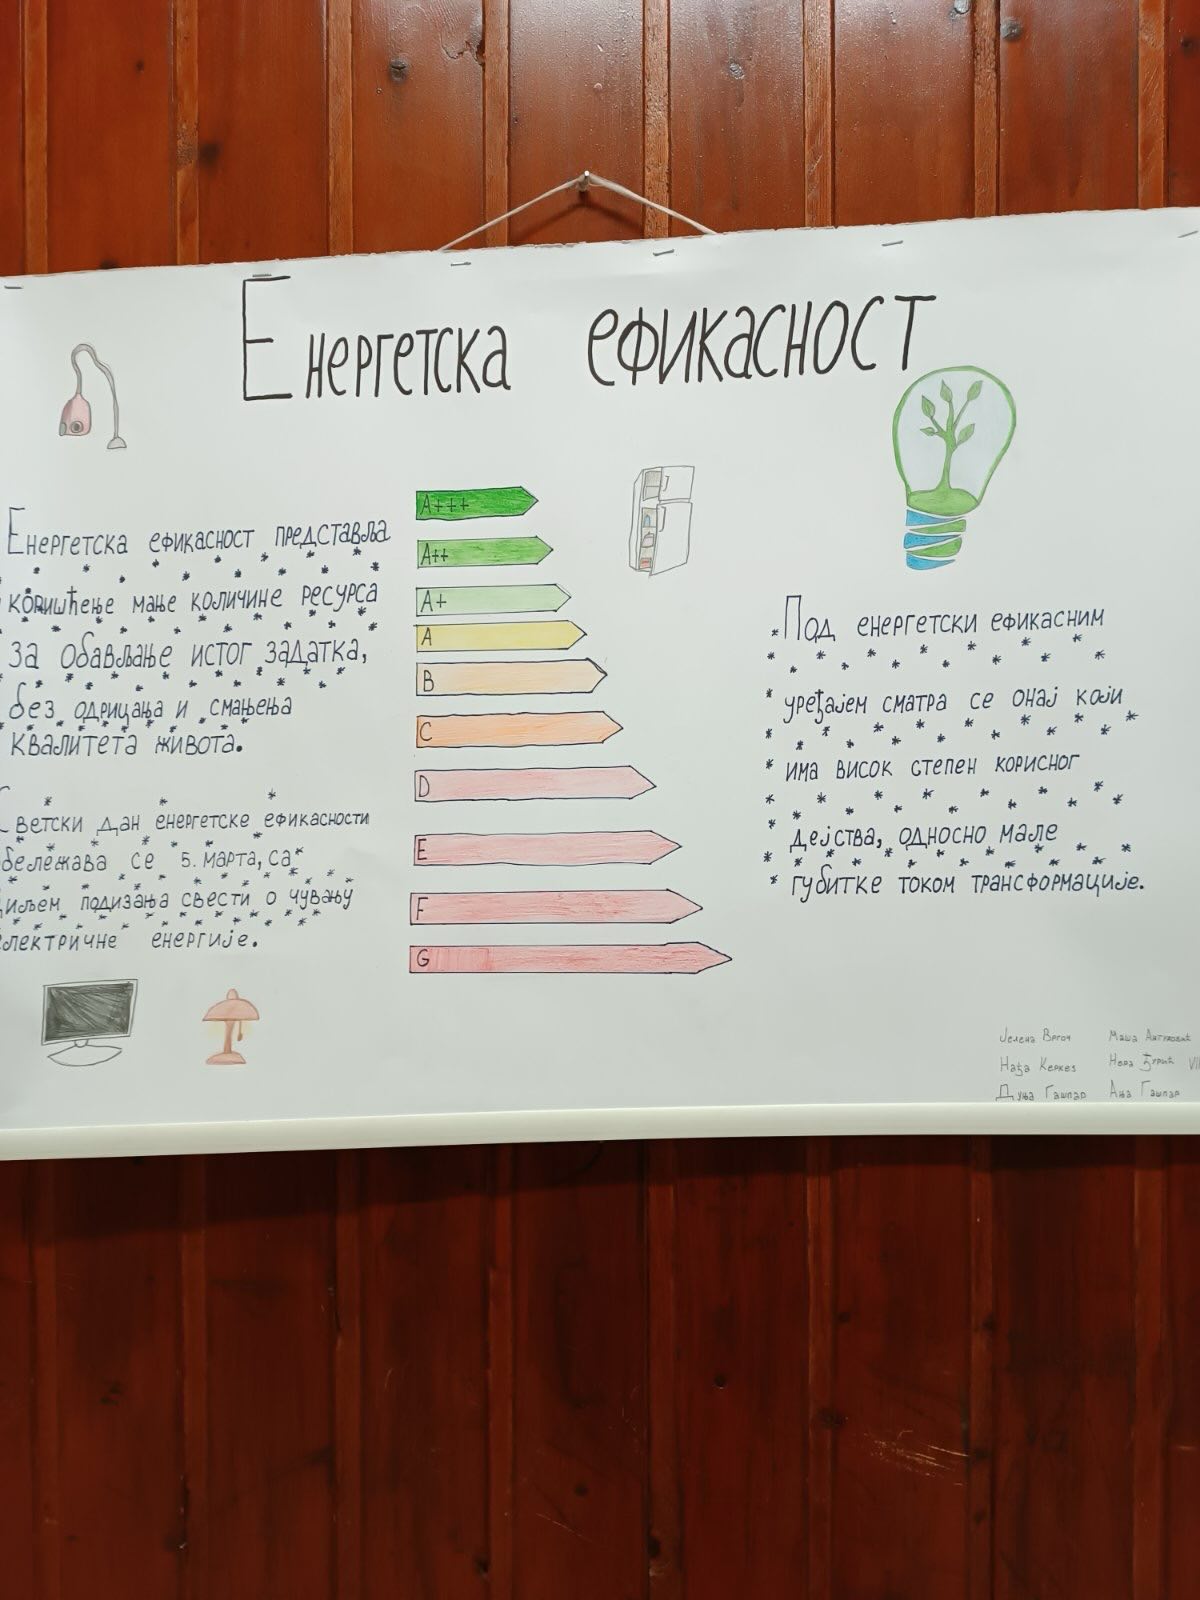 Енергетска ефикасност
Енергетска ефикасност представља
коришћење мање количине ресурса
за обављање истог задатка,
без одрицања и смањења
квалитета живота.
Светски дан енергетске ефикасности
бележава се 5. марта, са
циљем подизања свести о чувању
електричне енергије.
A+++
A++
A+
A
B
C
D
E
F
G
Под енергетски ефикасним
уређајем сматра се онај који
има висок степен корисног
дејства, односно мале
губитке током трансформације.
Јелена Вргоч
Нађа Керкез
Дуња Гашпар
Маша
Нера Ђурић VII
Ања Гашпар